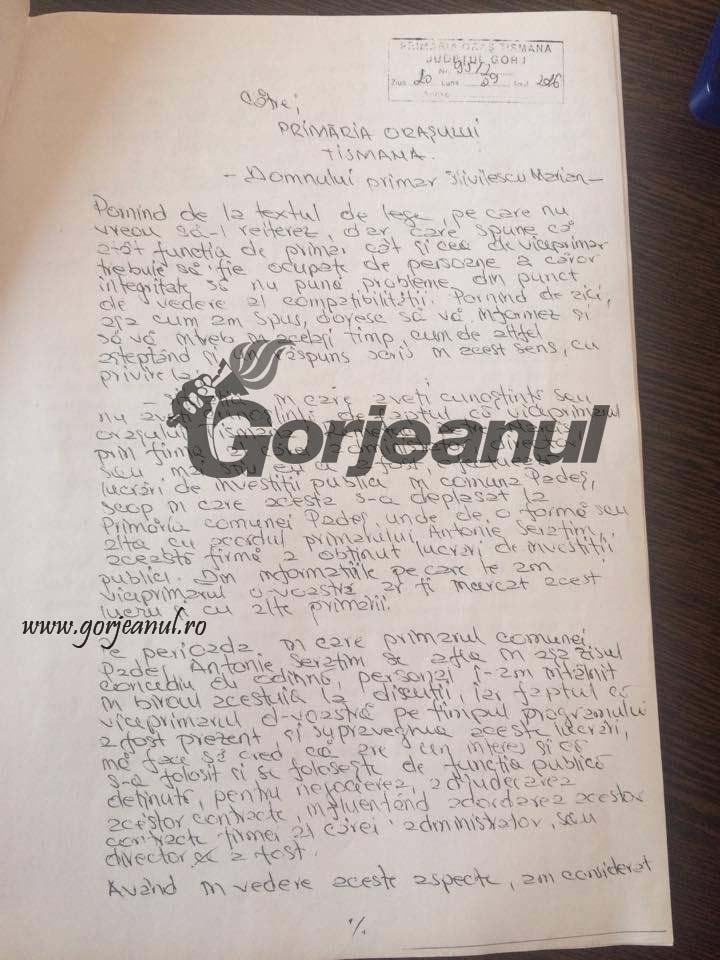 PRIMĂRIA ORAȘ TISMANA
JUDEȚUL GORJ
Nr.
Ziua 20 Luna 09 Anul 2016
Către,
PRIMĂRIA ORAȘULUI
TISMANA.
- Domnului primar Slivilescu Marian -
Pornind de la textul de lege, pe care nu
vreau să-l reiterez, dar care spune că
atât funcția de primar cât și cea de viceprimar
trebuie să fie ocupate de persoane a căror
integritate să nu pună probleme din punct
de vedere al compatibilității. Pornind de aici,
așa cum am spus, doresc să vă informez și
să vă întreb în același timp, cum de altfel
așteptând și un răspuns scris în acest sens, cu
privire la:
în care aveți cunoștință sau
nu aveți de faptul că viceprimarul
orașului Tismana
prin firma a cărei director
sau mai
lucrări de investiții publice în comuna Padeș,
scop în care acesta s-a deplasat la
Primăria comunei Padeș, unde de o formă sau
alta cu acordul primarului, Antonie Serafim,
această firmă a obținut lucrări de investiții
publice. Din informațiile pe care le am
viceprimarul d-voastră ar fi încercat acest
lucru și cu alte primării.
Pe perioada în care primarul comunei
Padeș, Antonie Serafim se afla în așa zisul
concediu de odihnă, personal l-am întâlnit
în biroul acestuia la discuții, iar faptul că
viceprimarul d-voastră pe timpul programului
a fost prezent și supraveghea aceste lucrări,
mă face să cred că are un interes și că
s-a folosit și se folosește de funcția publică
deținută, pentru negocierea, adjudecarea
acestor contracte, influențând acordarea acestor
contracte firmei al cărei administrator, sau
director a fost.
Având în vedere aceste aspecte, am considerat
./.
Gorjeanul
www.gorjeanul.ro